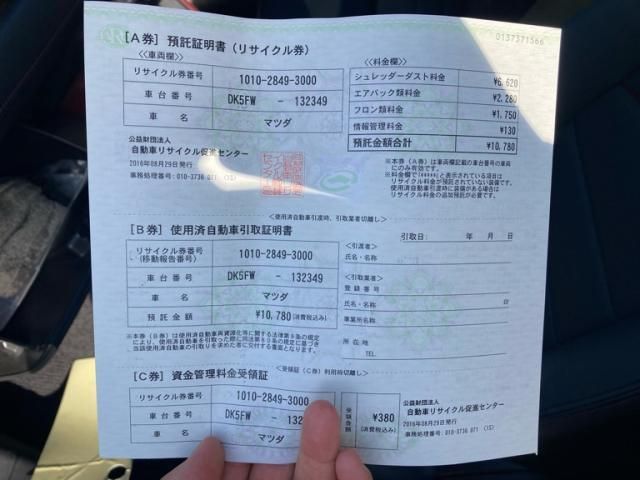 0137371566
[A券] 預託証明書（リサイクル券）
＜車両欄＞
リサイクル券番号 1010-2849-3000
車台番号 DK5FW - 132349
車名 マツダ
＜料金欄＞
シュレッダーダスト料金 ¥6,620
エアバック類料金 ¥2,280
フロン類料金 ¥1,750
情報管理料金 ¥130
預託金額合計 ¥10,780
公益財団法人
自動車リサイクル促進センター
2016年08月29日発行
事務処理番号：010-3736 071 (15)
※本券（A券）は車両欄記載の車台番号の車両
にのみ有効です。
※料金欄で「*****」と表示されている項目は
リサイクル料金が預託されていない装備です。
使用済自動車引渡時に装備がある場合は
リサイクル料金の追加預託が必要です。
＜使用済自動車引渡時、引取業者切離し＞
[B券] 使用済自動車引取証明書
引取日： 年 月 日
リサイクル券番号
（移動報告番号） 1010-2849-3000
車台番号 DK5FW - 132349
車名 マツダ
預託金額 ¥10,780（消費税込み）
＜引渡者＞
氏名・名称
＜引取業者＞
登録番号
氏名・名称
事業所名称
所在地
TEL
※本券（B券）は使用済自動車再資源化等に関する法律第９条の規定
により、使用済自動車を引取った際に同法第８０条の規定に基づき
当該使用済自動車の引取りを求めた者に交付する書面となります。
＜受領証（C券）利用時切離し＞
[C券] 資金管理料金受領証
リサイクル券番号 1010-2849-3000
車台番号 DK5FW - 132
車名 マツダ
受領金額 ¥380
（消費税込み）
公益財団法人
自動車リサイクル促進センター
2016年08月29日発行
事務処理番号：010-3736 071 (15)